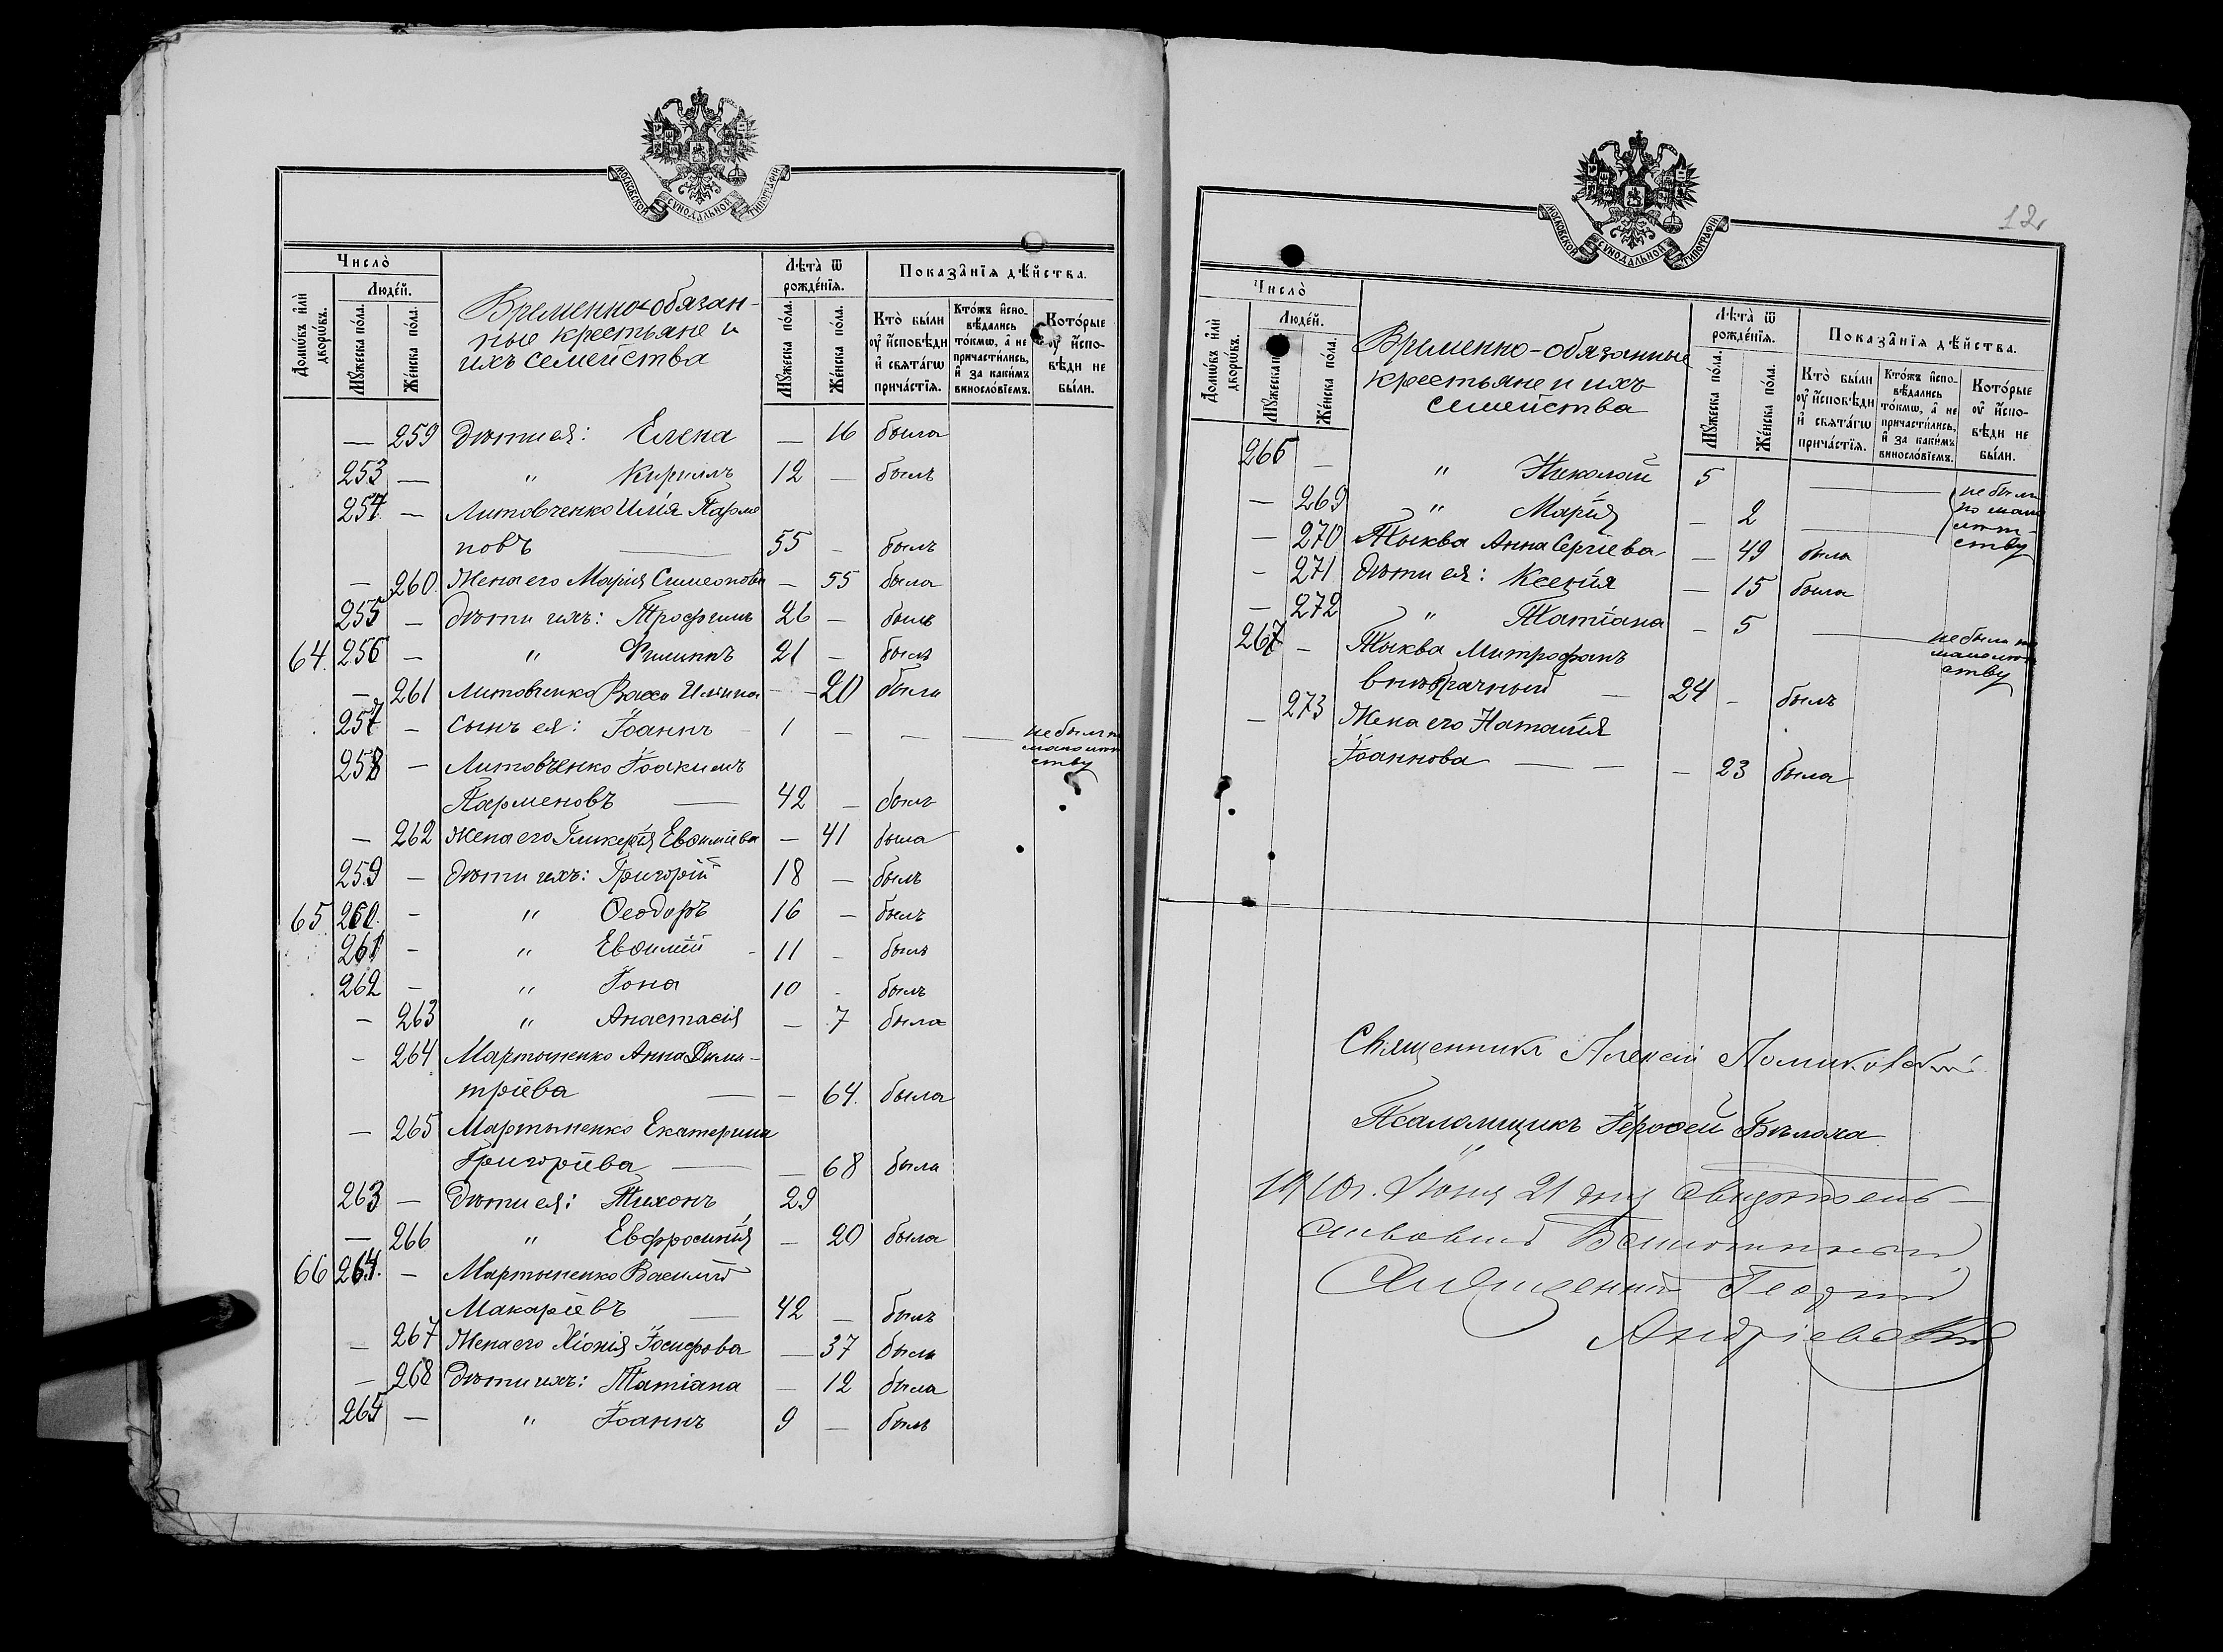 МОСКОВСКОЙ СѴНОДАЛЬНОЙ ТИПОГРАФІИ
Число̀
Домѡ́въ и҆лѝ дворѡ́въ.
Люде́й.
Мꙋ́жеска по́ла.
Же́нска по́ла.
Временно-обязан-
ные крестьяне и
ихъ семейства
Лѣта̀ ѿ рожде́нїѧ.
Мꙋ́жеска по́ла.
Же́нска по́ла.
Показа̑нїѧ дѣ́йства.
Кто̀ бы́ли ᲂу҆ и҆сповѣ́ди и҆ свѧта́гѡ прича́стїѧ.
Кто́жъ и҆спо-вѣ́дались то́кмѡ, а҆ не причасти́лись, и҆ за каки́мъ винословїемъ.
Кото́рые ᲂу҆ и҆спо-вѣ́ди не бы́ли.
— 259 Дѣти ея: Елена — 16 была
253 — " Кириллъ 12 — былъ
254. — Литовченко Илія Парме
новъ — 55 — былъ
— 260. Жена его Марія Симеонова — 55 была
255 — Дѣти ихъ: Трофимъ 26 — былъ
64. 256 — " Филиппъ 21 — былъ
— 261 Литовченко Васса Ильина — 20 была
257 — Сынъ ея: Іоаннъ 1 — — — не былъ по
малолѣт
ству
258 — Литовченко Іоакимъ
Парменовъ — 42 — былъ
— 262 Жена его Гликерія Евѳиміева — 41 была
259 — Дѣти ихъ: Григорій 18 — былъ
65. 260. — " Ѳеодоръ 16 — былъ
261 — " Евѳимій 11 — былъ
262 — " Іона 10 — былъ
— 263 " Анастасія — 7 была
— 264 Мартыненко Анна Дими-
тріева — — 64. была
— 265 Мартыненко Екатерина
Григоріева — — 68 была
263 — Дѣти ея: Тихонъ 29
— 266 " Евфросинія — 20 была
66 264. — Мартыненко Василій
Макаріевъ — 42 — былъ
— 267 Жена его Хіонія Іосифова — 37 была
— 268 Дѣти ихъ: Татіана — 12 была
265 — " Іоаннъ 9 — былъ
12
МОСКОВСКОЙ СѴНОДАЛЬНОЙ ТИПОГРАФІИ
Число̀
Домѡ́въ и҆лѝ дворѡ́въ.
Люде́й.
Мꙋ́жеска
Же́нска по́ла.
Временно-обязанные
крестьяне и ихъ
семейства
Лѣта̀ ѿ рожде́нїѧ.
Мꙋ́жеска по́ла.
Же́нска по́ла.
Показа̑нїѧ дѣ́йства.
Кто̀ бы́ли ᲂу҆ и҆сповѣ́ди и҆ свѧта́гѡ прича́стїѧ.
Кто́жъ и҆спо-вѣ́дались то́кмѡ, а҆ не причасти́лись, и҆ за каки́мъ винословїемъ.
Кото́рые ᲂу҆ и҆спо-вѣ́ди не бы́ли.
266 — " Николай 5 — не были
по мало
лѣт-
ству
— 269 " Марія — 2 —
— 270 Тыква Анна Сергіева — 49 была
— 271 Дѣти ея: Ксенія — 15 была
— 272 " Татіана — 5 — не была по
малолѣт
ству
267 — Тыква Митрофанъ
внѣбрачный — 24 — былъ
— 273 Жена его Наталія
Іоаннова — — — 23 была
Священникъ Алексій
Псаломщикъ Іероѳей Бѣлоха
1910 г. Іюня 21 дня свидѣтель-
ствовалъ Благочинный
Священникъ Георгій
Андріевскій